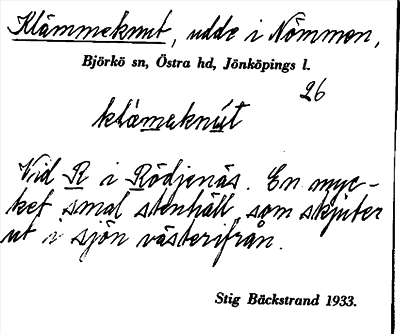 Klämmeknut, udde i Nömmen,
Björkö sn, Östra hd, Jönköpings l.
26
klämeknút
Vid R i Rödjenäs. En myc-
ket smal stenhäll som skjuter
ut i sjön västerifrån.
Stig Bäckstrand 1933.